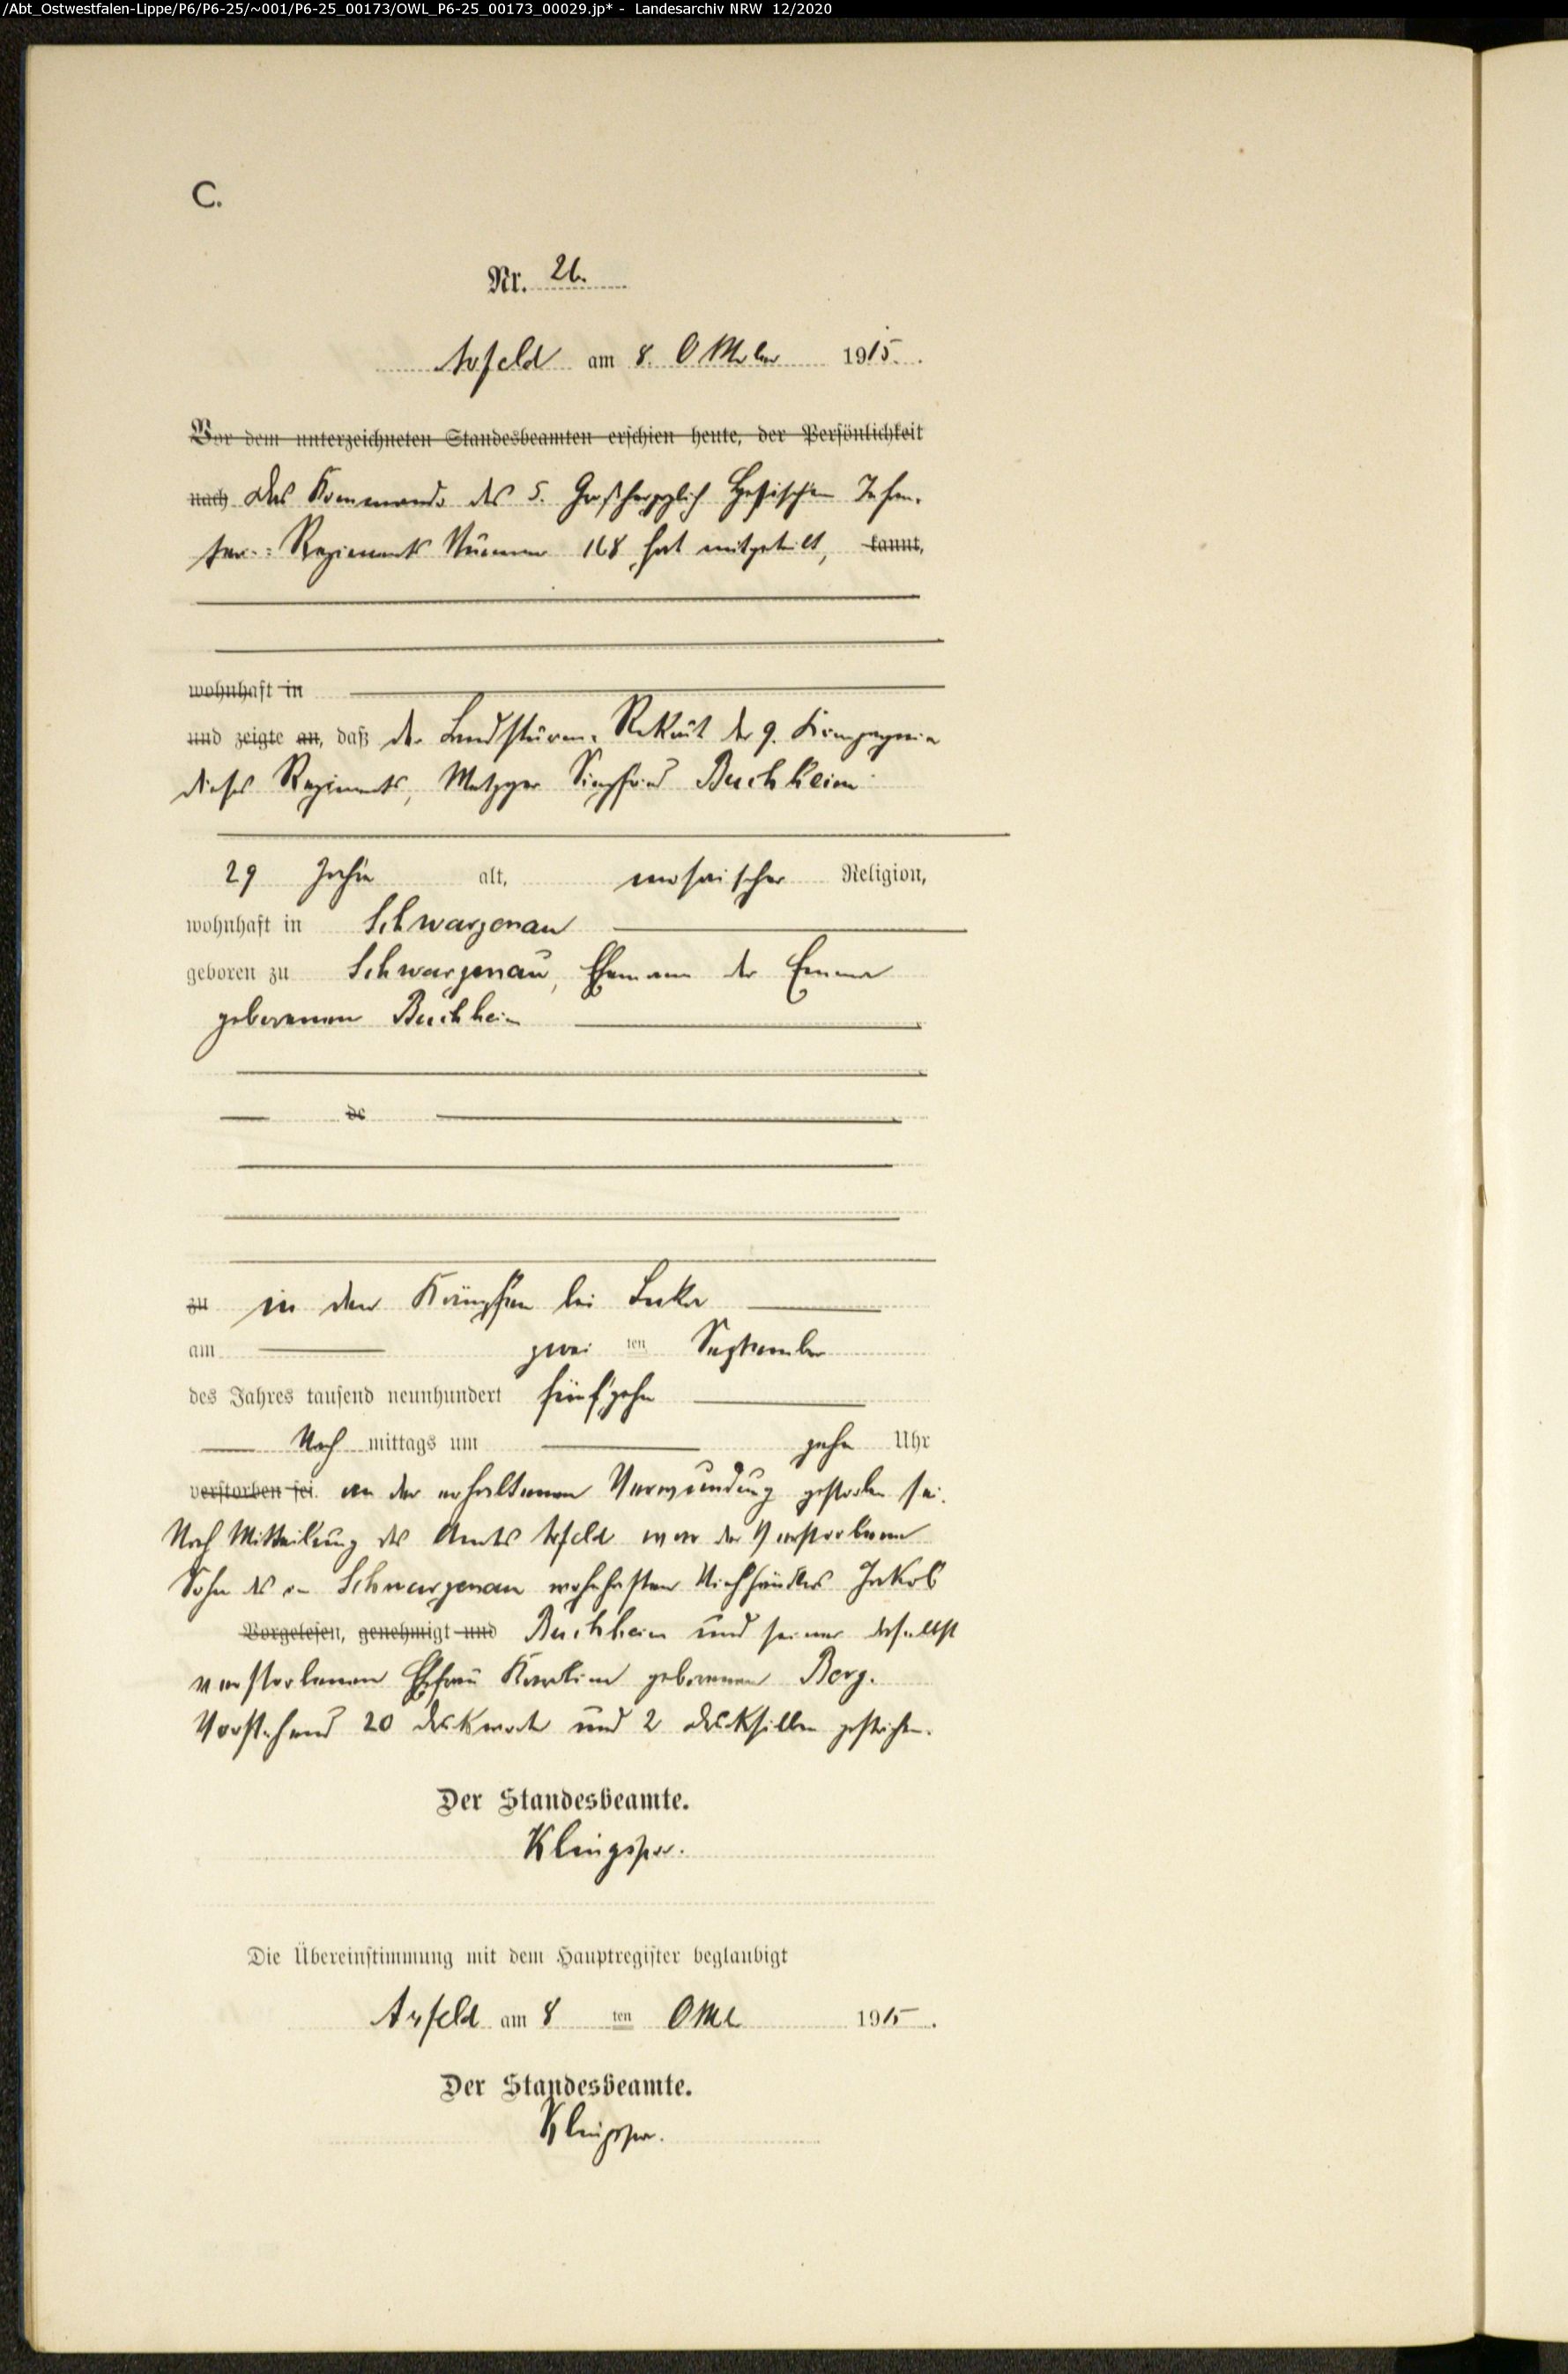 /Abt_Ostwestfalen-Lippe/P6/P6-25/~001/P6-25_00173/OWL_P6-25_00173_00029.jp* - Landesarchiv NRW 12/2020
C.
Nr. 26.
Arfeld am 8. Oktober 1915.
Vor dem unterzeichneten Standesbeamten erschien heute, der Persönlichkeit
nach Das Kommando des 5. Großherzoglich Hessischen Infan-
terie-Regiments Nummer 168 hat mitgeteilt, kannt,
wohnhaft in
und zeigte an, daß der Landsturm-Rekrut der 9. Kompagnie
dieses Regiments, Metzger Siegfried Buchheim
29 Jahre alt, mosaischer Religion,
wohnhaft in Schwarzenau
geboren zu Schwarzenau, Ehemann der Emma
geborenen Buchheim
de
zu in den Kämpfen bei
am zwei ten September
des Jahres tausend neunhundert fünfzehn
Nach mittags um zehn Uhr
verstorben sei. an der erhaltenen Verwundung gestorben sei.
Nach Mitteilung des Amts Arfeld war der Verstorbene
Sohn des in Schwarzenau wohnhaften Viehhändlers Jakob
Vorgelesen, genehmigt und Buchheim und seiner daselbst
verstorbenen Ehefrau Karoline geborenen Berg.
Vorstehend 20 Druckworte und 2 Drucksilben gestrichen.
Der Standesbeamte.
Klingspor.
Die Übereinstimmung mit dem Hauptregister beglaubigt
Arfeld am 8 ten Oktb 1915.
Der Standesbeamte.
Klingspor.